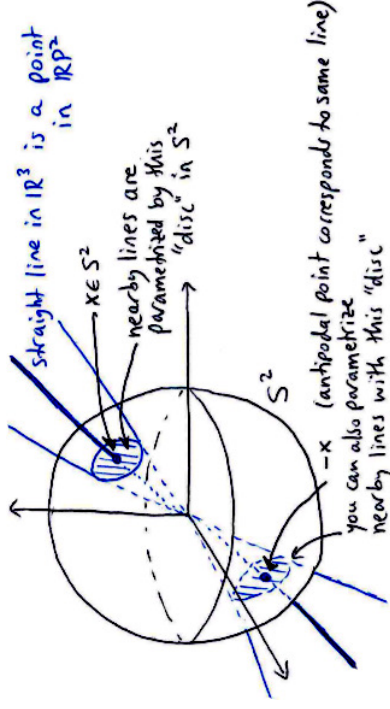 straight line in ℝ³ is a point
in ℝP²
x ∈ S²
nearby lines are
parametrized by this
"disc" in S²
S²
-x (antipodal point corresponds to same line)
you can also parametrize
nearby lines with this "disc"